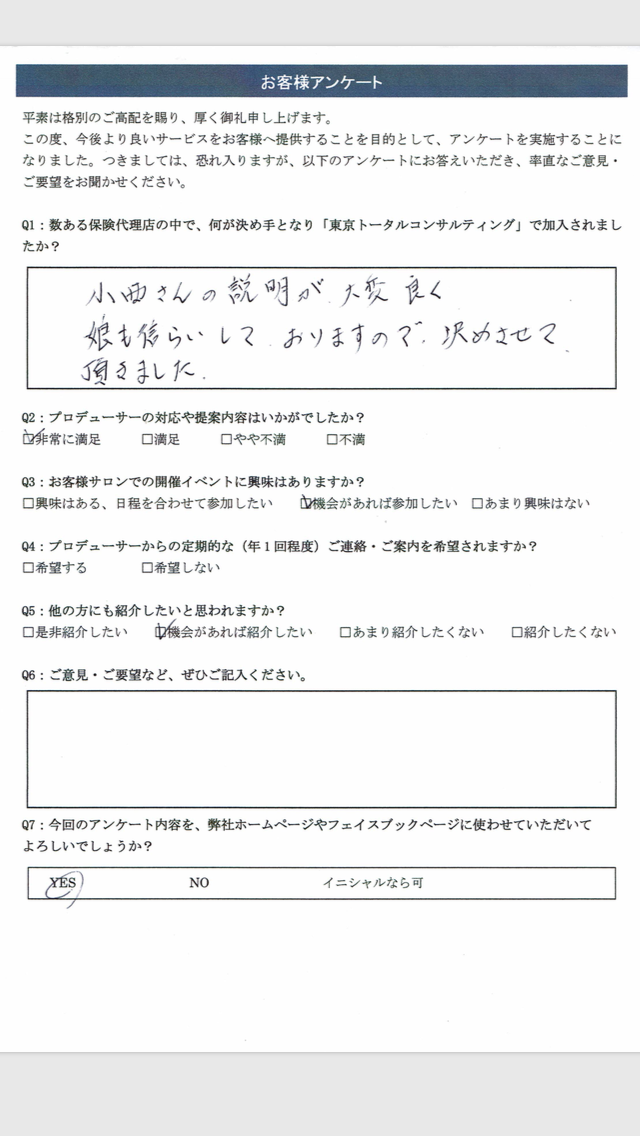 お客様アンケート
平素は格別のご高配を賜り、厚く御礼申し上げます。
この度、今後より良いサービスをお客様へ提供することを目的として、アンケートを実施することに
なりました。つきましては、恐れ入りますが、以下のアンケートにお答えいただき、率直なご意見・
ご要望をお聞かせください。
Q1：数ある保険代理店の中で、何が決め手となり「東京トータルコンサルティング」で加入されまし
たか？
小西さんの説明が 大変 良く
娘も信らいして おりますので、決めさせて
頂きました。
Q2：プロデューサーの対応や提案内容はいかがでしたか？
☑非常に満足 □満足 □やや不満 □不満
Q3：お客様サロンでの開催イベントに興味はありますか？
□興味はある、日程を合わせて参加したい ☑機会があれば参加したい □あまり興味はない
Q4：プロデューサーからの定期的な（年１回程度）ご連絡・ご案内を希望されますか？
□希望する □希望しない
Q5：他の方にも紹介したいと思われますか？
□是非紹介したい ☑機会があれば紹介したい □あまり紹介したくない □紹介したくない
Q6：ご意見・ご要望など、ぜひご記入ください。
Q7：今回のアンケート内容を、弊社ホームページやフェイスブックページに使わせていただいて
よろしいでしょうか？
YES NO イニシャルなら可